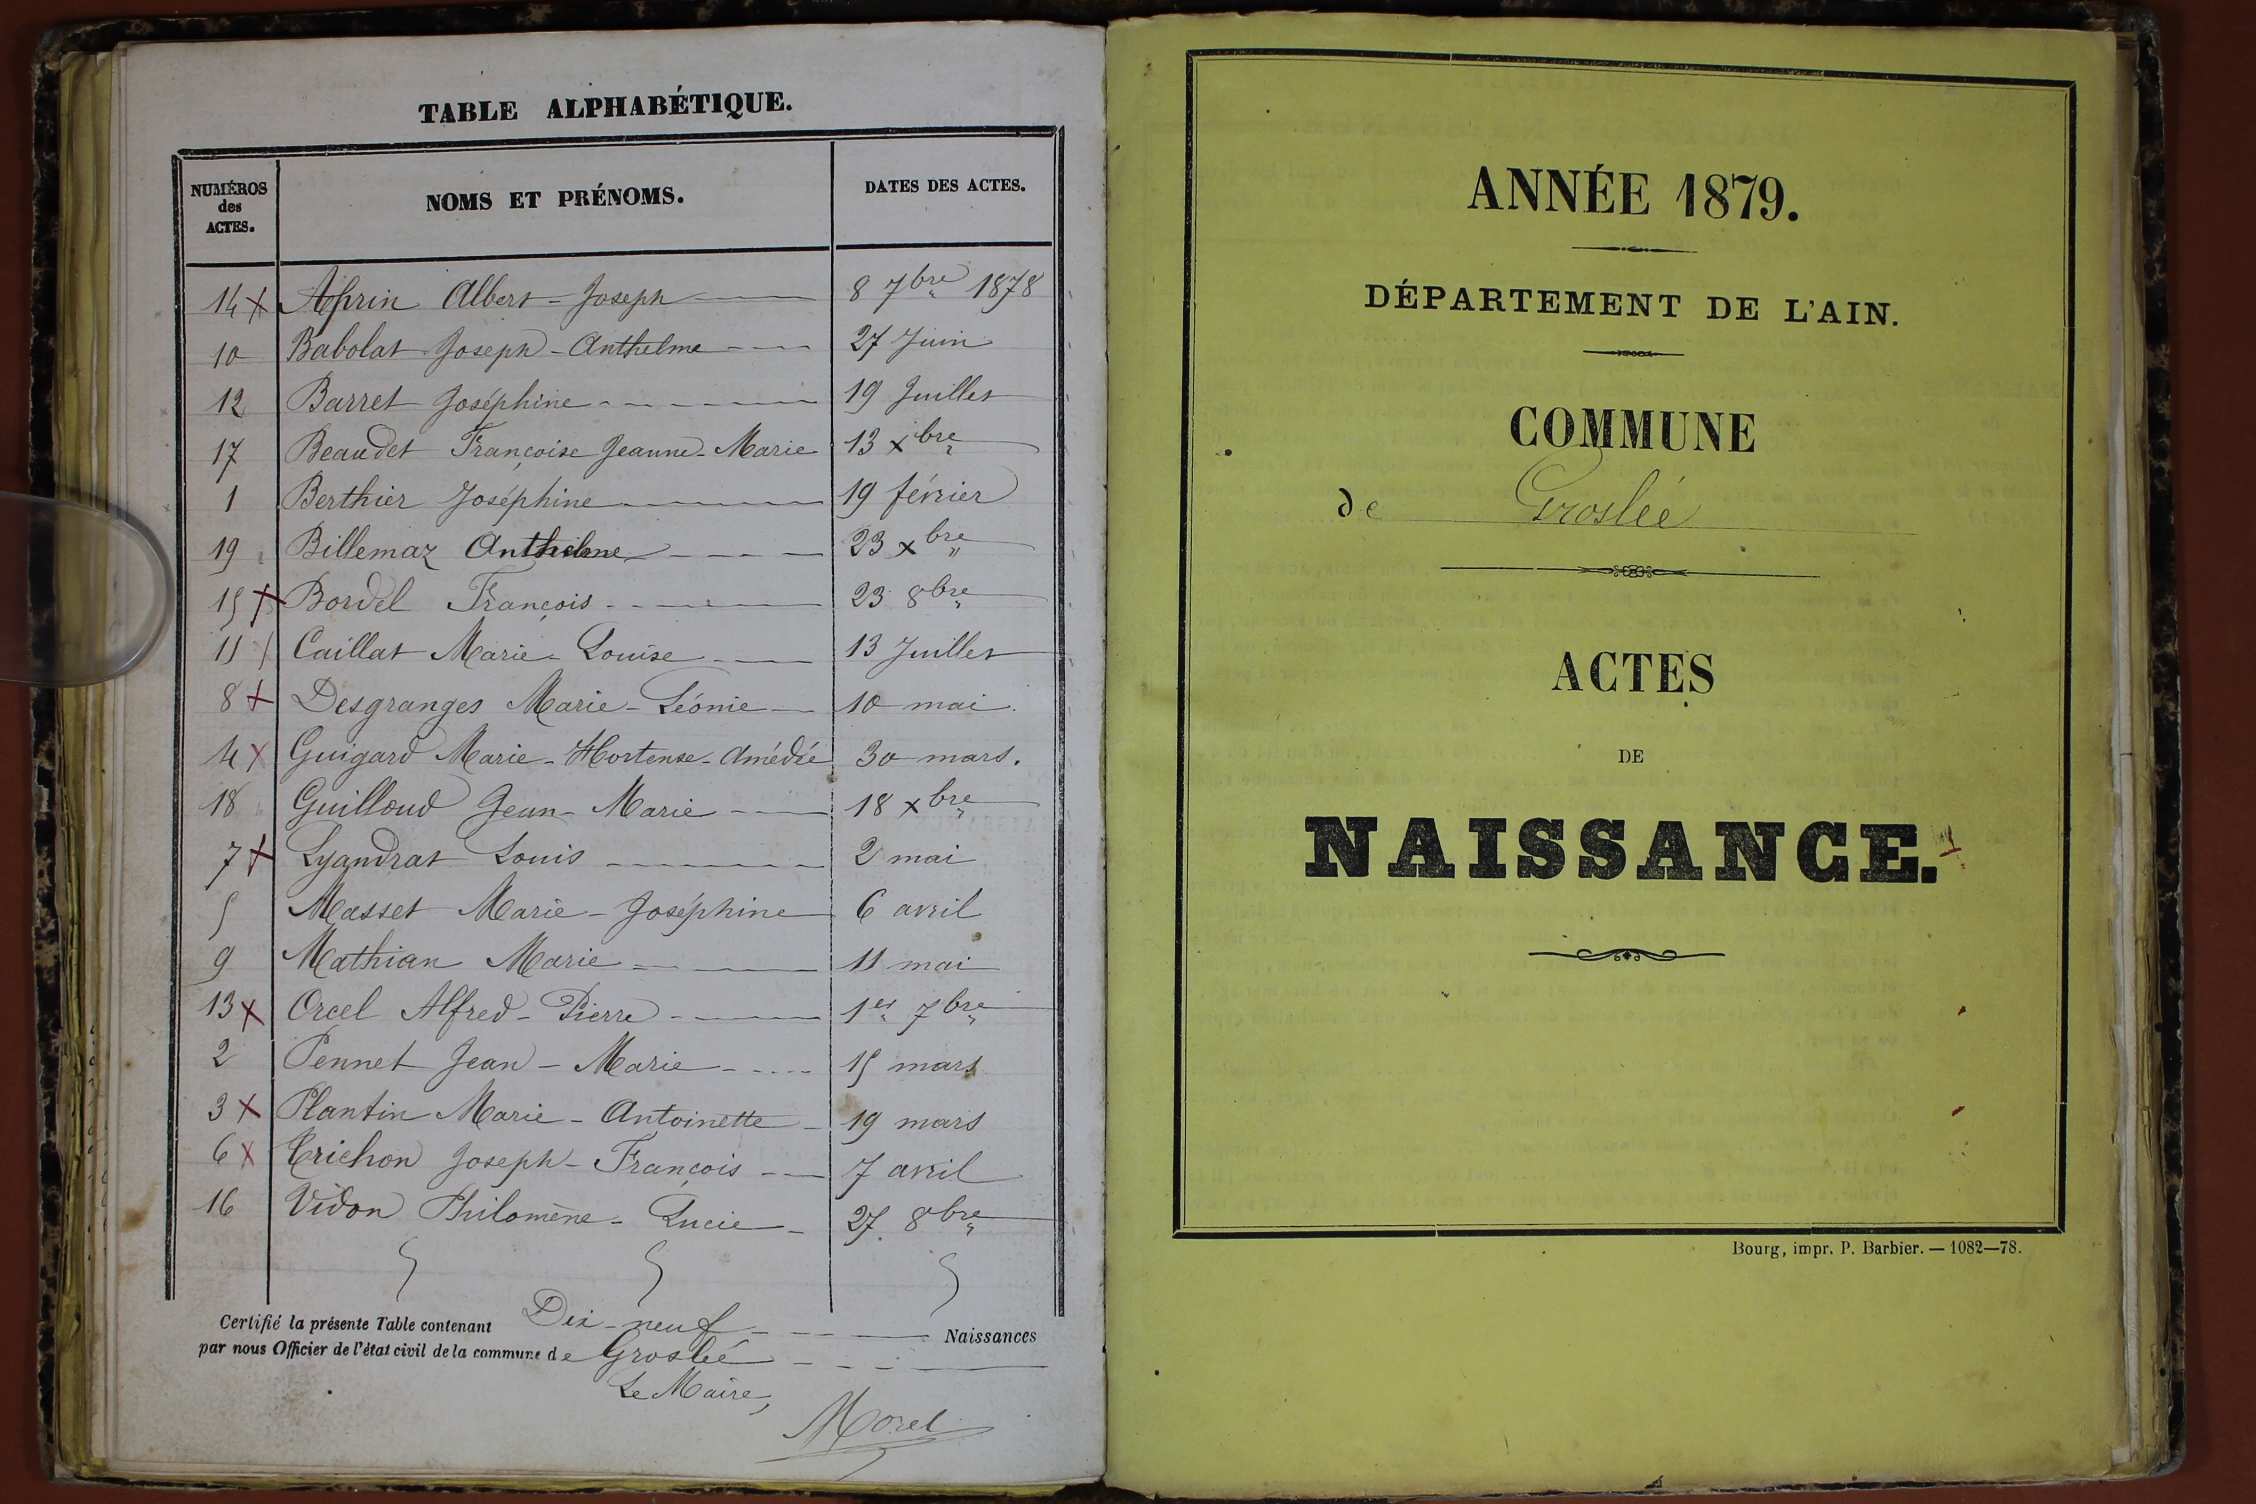 TABLE ALPHABÉTIQUE.
NUMÉROS
des
ACTES.
NOMS ET PRÉNOMS.
DATES DES ACTES.
14 x Albert - Joseph 8 7bre 1878
10 Babolat Joseph - Anthelme 27 Juin
12 Barret Joséphine 19 Juillet
17 Beaudet Françoise Jeanne - Marie 13 xbre
1 Berthier Joséphine 19 février
19 Billemaz Anthelme 23 xbre
15 x Bordel François 23 8bre
11 x Caillat Marie - Louise 13 Juillet
8 x Desgranges Marie - Léonie 10 mai
4 x Guigard Marie - Hortense - Amédée 30 mars.
18 Guilloud Jean - Marie 18 xbre
7 x Lyandrat Louis 2 mai
5 Masset Marie - Joséphine 6 avril
9 Mathian Marie 11 mai
13 x Orcel Alfred - Pierre 1er 7bre
2 Pennet Jean - Marie 15 mars
3 x Plantin Marie - Antoinette 19 mars
6 x Trichon Joseph - François 7 avril
16 Vidon Philomène - Lucie 27. 8bre
Certifié la présente Table contenant Dix - neuf Naissances
par nous Officier de l'état civil de la commune de Groslée
Le Maire,
Morel
ANNÉE 1879.
DÉPARTEMENT DE L'AIN.
COMMUNE
de Groslée
ACTES
DE
NAISSANCE.
Bourg, impr. P. Barbier. — 1082—78.